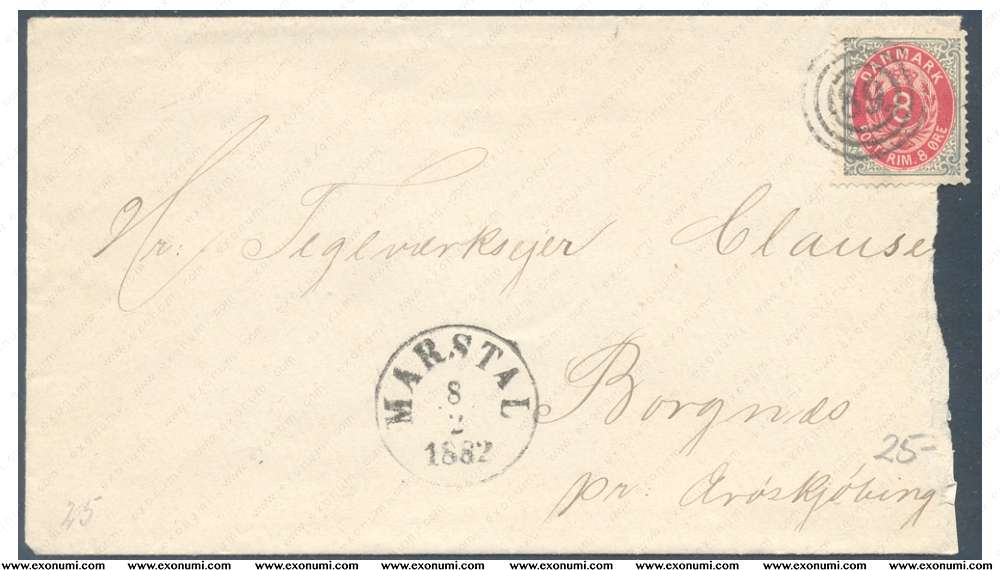 DANMARK
8
POSTFRIM. 8 ØRE
Hr. Teglværksejer Clausen
MARSTAL
8
2
1882
Borgnæs
25-
pr. Ærøskjöbing
25
www.exonumi.com www.exonumi.com www.exonumi.com www.exonumi.com www.exonumi.com www.exonumi.com www.exonumi.com www.exonumi.com